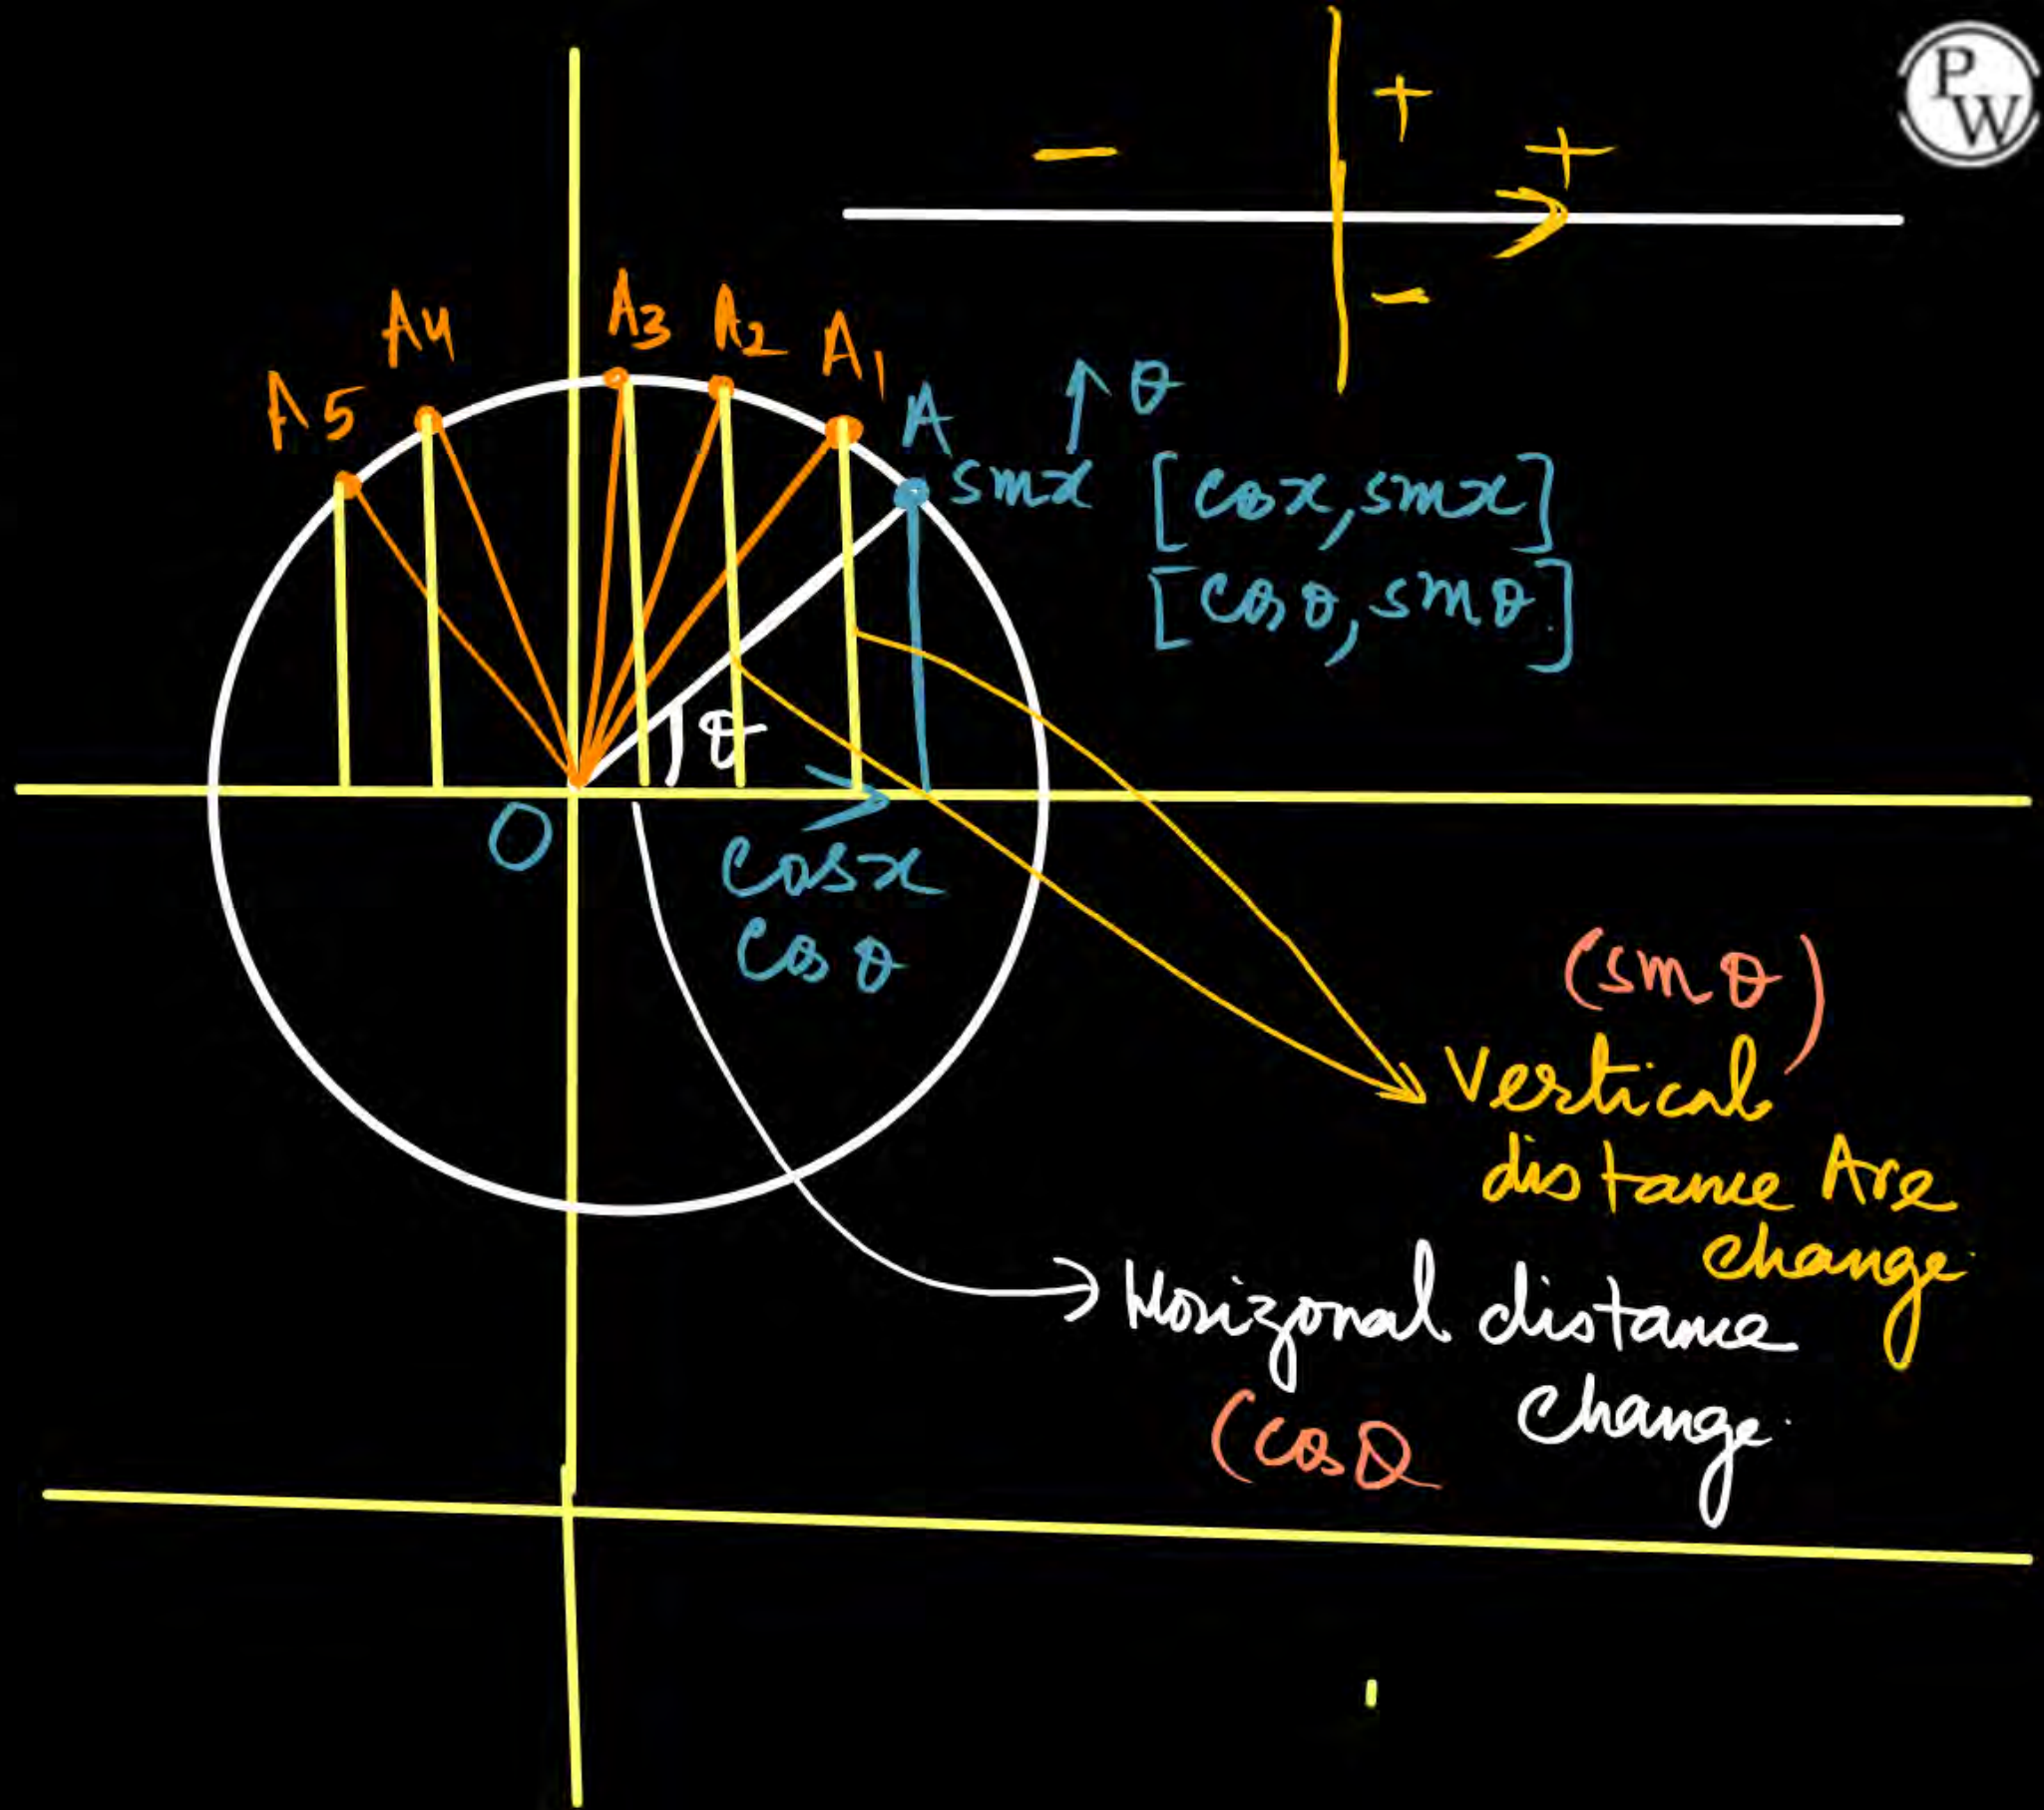 PW
+
− +
−
A4 A3 A2 A1
A5 A ↑θ
sinx [cosx, sinx]
[cosθ, sinθ]
θ
O
cosx
cosθ
(sinθ)
Vertical
distance Are
change
→ Horizonal distance
change
(cosθ